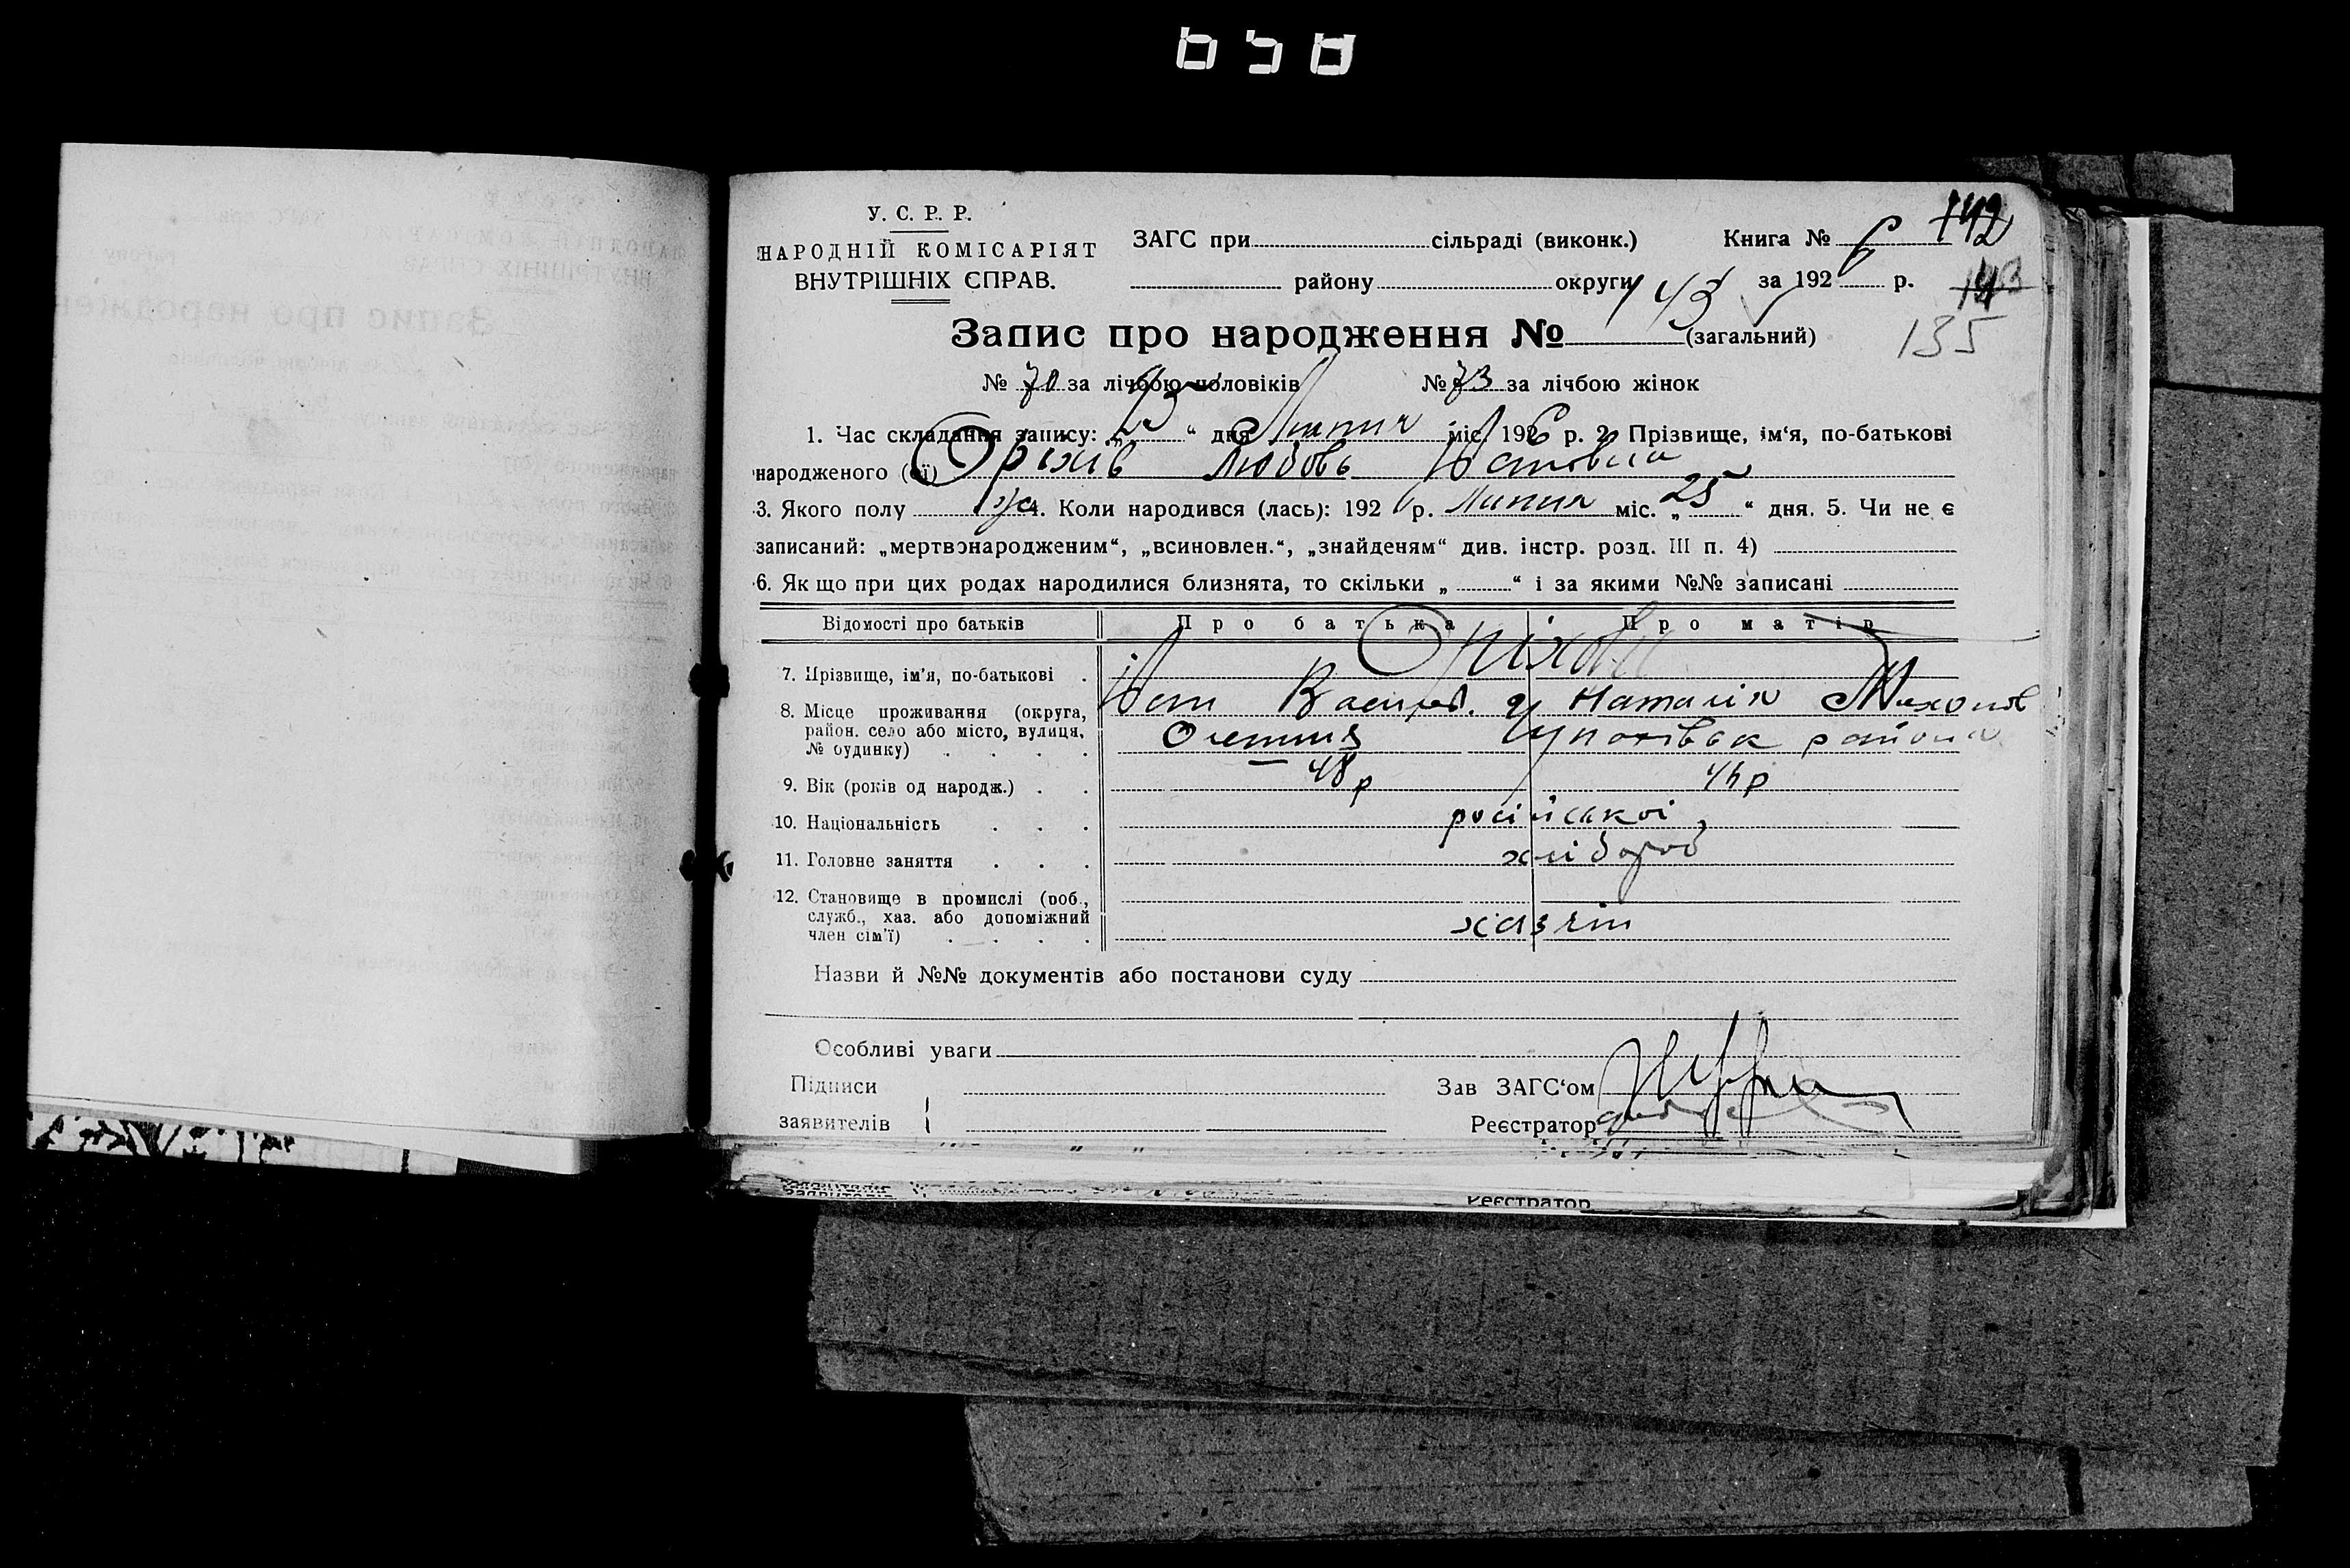 У. С. Р. Р.
НАРОДНІЙ КОМІСАРІЯТ
ВНУТРІШНІХ СПРАВ.
ЗАГС при сільраді (виконк.) Книга № 142
району округи за 1926 р. 143
135
Запис про народження № 143 (загальний)
№ 70 за лічбою чоловіків № 73 за лічбою жінок
1. Час складання запису: „ “ дня Липня міс. 1926 р. 2. Прізвище, ім‘я, по-батькові
народженого (ої) Оріхів Любовь
3. Якого полу ж 4. Коли народився (лась): 1926 р. Липня міс. „25“ дня. 5. Чи не є
записаний: „мертвонародженим“, „всиновлен.“, „знайденям“ див. інстр. розд. III п. 4)
6. Якщо при цих родах народилися близнята, то скільки „ “ і за якими №№ записані
Відомості про батьків Про батька Про матір
Оріхови
7. Прізвище, ім’я, по-батькові Наталія
8. Місце проживання (округа, район. село або місто, вулиця, № будинку) района
9. Вік (років од народж.) 48 р
10. Національність російської
11. Головне заняття хлібороб
12. Становище в промислі (роб., служб., хаз. або допоміжний член сім’ї) хазяїн
Назви й №№ документів або постанови суду
Особливі уваги
Підписи
заявителів
Зав ЗАГС‘ом
Реєстратор
Реєстратор